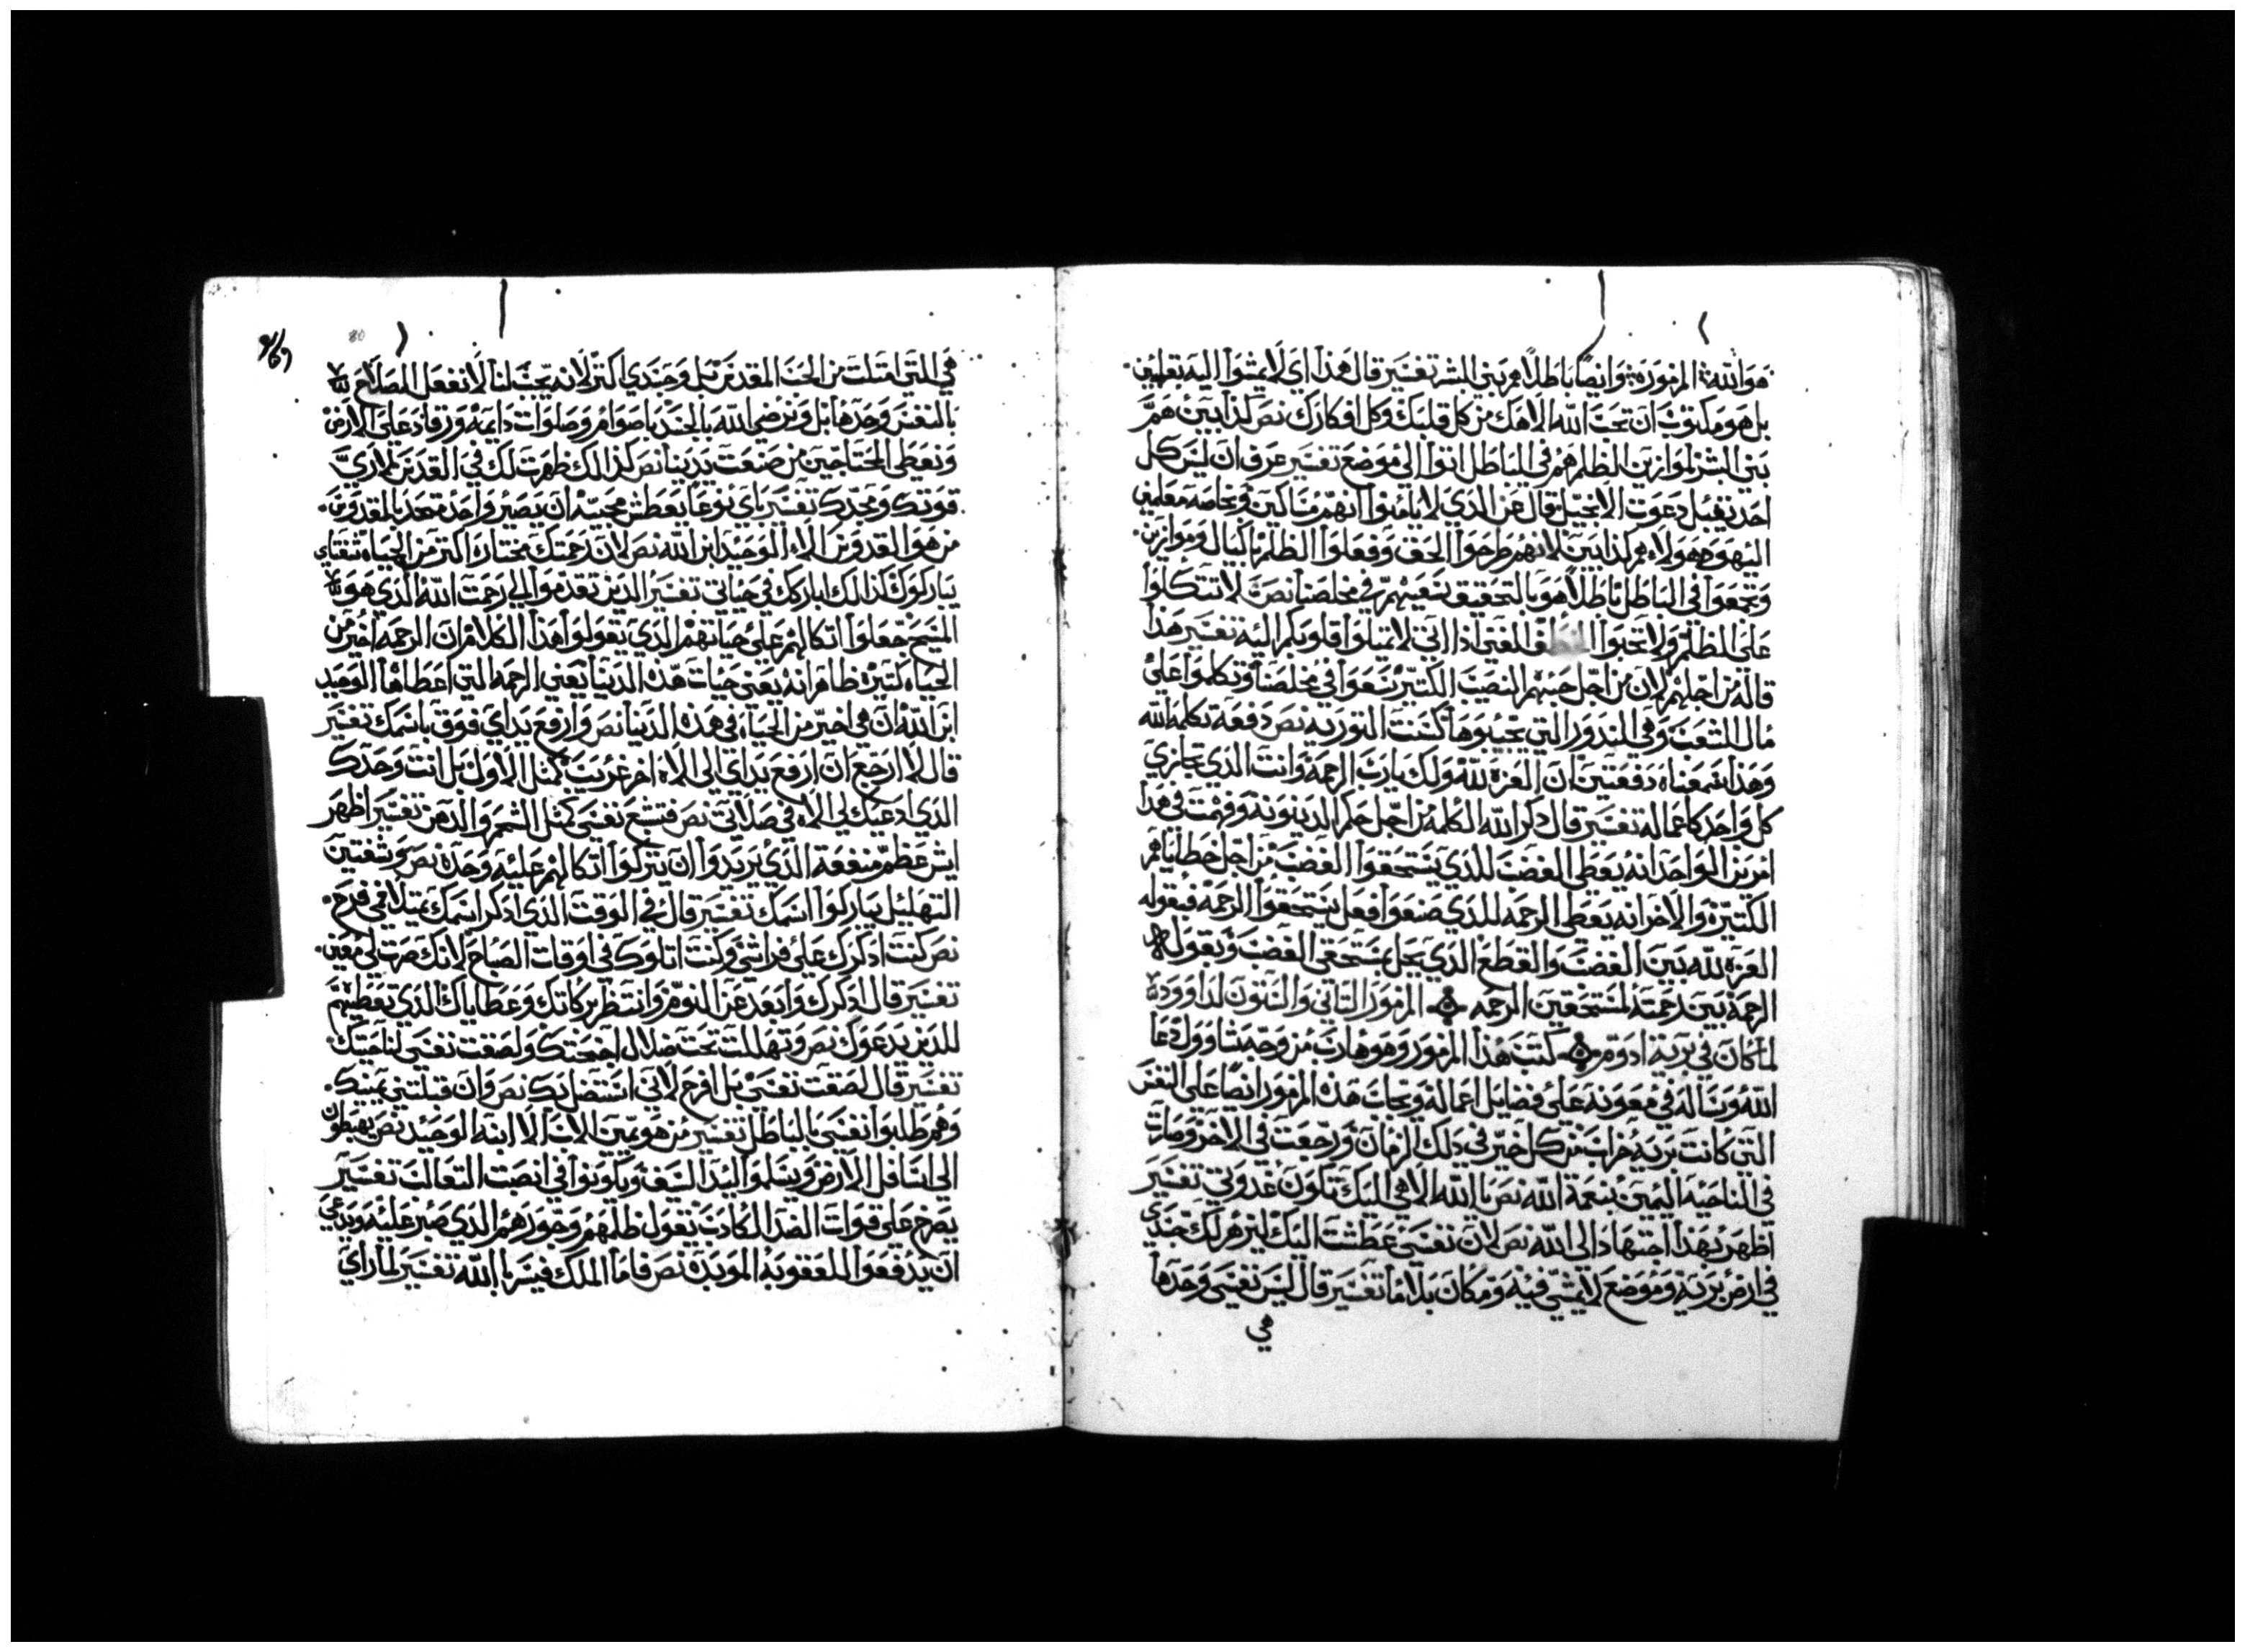 هو الله المزموره وايضا باطلا هم بني البشر تفسير قال هذا اي لا يمشوا اليه بقلبين
بل هو مكتوب ان تحب الله الاهك من كل قلبك وكل افكارك نص كدابين هم
بني البشر لموازين الظلم هم في الباطل اتوا الي موضع تفسير عرف ان ليس كل
احد يقبل دعوت الانجيل قال عن الذي لا يامنوا انهم مساكين وبخاصه معلمين
اليهود هولاء هم كدابين لانهم طرحوا الحق وفعلوا الظلم بالكيال وموازين
وتجمعوا في الباطل باطلا هو بالتحقيق سعيهم في مخلصنا نص لا تتكلوا
علي الظلم ولا تحبوا الخطف الغني ادا اتي لا تميلوا قلوبكم اليه تفسير هذا
قاله من اجلهم لان من اجل حبهم النصيب الكتير سعوا في مخلصنا وتكلموا علي
مال الشعب وفي الندور التي يجيبوها كنت التوريه نص دفعة تكلم الله
وهذا سمعناه دفعتين ان العزه لله ولك يارب الرحمة وانت الذي تجازي
كل واحد كاعماله تفسير قال ذكر الله الكلمه من اجل حكم الدينونه وفهمت في هدا
امرين الواحد انه يعطي الغضب للذي يستحقوا الغضب من اجل خطاياهم
الكتيره والاخر انه يعطي الرحمه للذي صنعوا فعل يستحقوا الرحمه فبقوله
العزه لله بين الغضب والقطع الذي يحل بمستحقي الغضب وبقوله
الرحمة بين رحمته لمستحقين الرحمه المزمور التاني والستون لداوود
لما كان في برية ادوم كتب هذا المزمور وهو هارب من وجه شاوول دعا
الله وساله في معونه علي فضايل اعماله ويجاب هذه المزمور ايضا علي النفس
التي كانت بريه خراب من كل خير في ذلك الزمان ورجعت في الاخر وصارت
في الناحيه اليمين بنعمة الله نص يا الله الاهي اليك تكون غدوتي تفسير
اظهر بهذا اجتهاد الي الله نص لان نفسي عطشت اليك ليزهر لك جسدي
في ارض برية وموضع لا يمشي فيه ومكان بلا ما تفسير قال ليس نفسي وحدها
هي
هي التي امتلت من الحب المقدس بل وجسدي اكتر لانه يجب لنا لا نفعل الصلاح
بالنفس وحدها بل ونرضي الله بالجسد باصوام وصلوات دايمه ورقاد علي الارض
ونعطي المحتاجين من صنعت يدينا نص كذالك ظهرت لك في القدس لاري
قوتك ومجدك تفسير باي نوعا يعطش محبته ان يصير واحد متحد بالقدوس
من هو القدوس الا الوحيد ابن الله نص لان رحمتك تختار اكتر من الحياه شفتاي
يباركوك كذالك اباركك في حياتي تفسير الدين تقدموا الي رحمت الله الذي هو
المسيح جعلوا اتكالهم علي حياتهم الذي يقولوا هذا الكلام ان الرحمه اخير من
الحياه كتيره ظاهر انه يعني حيات هده الدنيا يعني الرحمه التي اعطاها الوحيد
ابن الله ان هي اخير من الحياه في هذه الدنيا نص وارفع يداي فوق باسمك تفسير
قال لا ارجع ان ارفع يداي الي الاه اخر غريب كمتل الاول بل انت وحدك
الذي ادعيك لي الاه في صلاتي نص فتشبع نفسي كمتل الشحم والدهن تفسير اظهر
ايش عظم منفعة الذي يريدوا ان يتركوا اتكالهم عليه وحده نص وشفتين
التهليل يباركوا اسمك تفسير قال في الوقت الذي ادكر اسمك يمتلا فمي فرح
نص كنت ادكرك علي فراشي وكنت اتلوك في اوقات الصباح لانك صرت لي معين
تفسير قال ادكرك وابعد عن النوم وانتظر بركاتك وعطاياك الذي تعطيهم
للدين يدعوك نص وتهللت تحت ضلال اجنحتك ولصقت نفسي لناحيتك
تفسير قال لصقت نفسي بل افرح لاني استضل بك نص وان قبلتني يمينك
وهم طلبوا نفسي بالباطل تفسير من هو يمين الاب الا ابنه الوحيد نص يهبطون
الي اسافل الارض ويسلموا ليد السيف ويكونوا في انصبت التعالب تفسير
يصرح علي قوات الضد الكادب يقول ظلمهم وجورهم الذي صبر عليه ويدعي
ان يدفعوا للعقوبه الموبده نص فاما الملك فيسر بالله تفسير لما راي